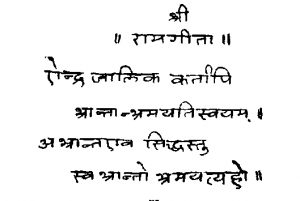 श्री
॥ रामगीता ॥
ऐन्द्रजालिक कर्तापि
भ्रान्तान्भ्रमयतिस्वयम् ।
अभ्रान्तएव सिद्धस्तु
स्वभ्रान्तो भ्रमयत्यहो ॥